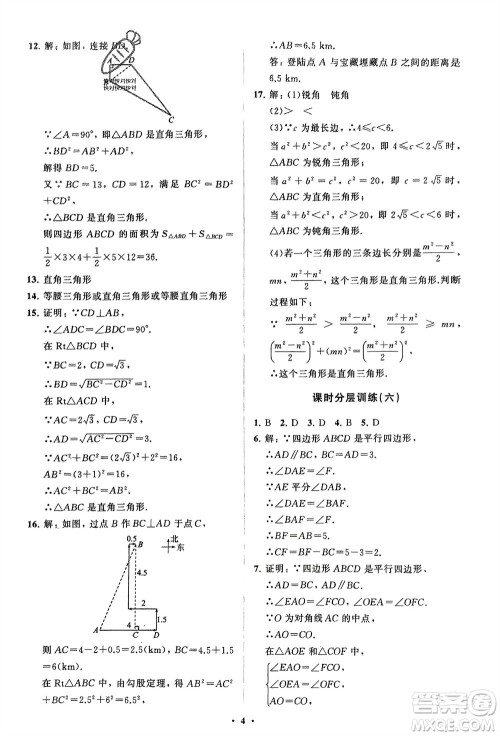 12. 解：如图，连接BD.
A D
B
C
∵∠A=90°，∴△ABD是直角三角形.
解得 BD=5.
又∵BC=13，CD=12，
∴△BCD是直角三角形.
则四边形 ABCD 的面积为 S△ABD+S△BCD=
1/2×3×4+1/2×5×12=36.
13. 直角三角形
14. 等腰三角形或直角三角形或等腰直角三角形
15. 证明：∵CD⊥AB，
∴∠ADC=∠BDC=90°.
在 Rt△BCD 中，
∵BC=2，CD=√3，
∴BD=√(BC²−CD²)=1.
在 Rt△ACD 中，
∵AC=2√3，CD=√3，
∴AD=√(AC²−CD²)=3.
∴AB=AD+BD=4.
∵BC²+AC²=2²+(2√3)²=16，AB²=16，
∴BC²+AC²=AB².
∴△ABC是直角三角形.
16. 解：如图，过点 B 作 BC⊥AD 于点 C，
0.5 B 北
东
4.5
2
1.5
A 4 C D
则 AC=4−2+0.5=2.5(km)，BC=4.5+1.5
=6(km).
在 Rt△ABC 中，由勾股定理，得
AB²=AC²+BC²=2.5²+6²=6.5².
∴AB=6.5 km.
答：登陆点 A 与宝藏埋藏点 B 之间的距离是
6.5 km.
17. 解：(1)锐角 钝角
(2)＞ ＜
(3)∵c 为最长边，∴4≤c＜6.
当 a²+b²＞c²，c²＜20，即 4≤c＜2√5 时，
△ABC 为锐角三角形；
当 a²+b²=c²，c²=20，即 c=2√5 时，
△ABC 为直角三角形；
当 a²+b²＜c²，c²＞20，即 2√5＜c＜6 时，
△ABC 为钝角三角形.
(4)若一个三角形的三条边长分别是(m²+n²)/2，
mn，(m²−n²)/2，这个三角形是直角三角形.判断
过程如下：
∵ (m²+n²)/2 ＞ (m²−n²)/2，(m²+n²)/2 ≥ mn，
((m²−n²)/2)²+(mn)²=((m²+n²)/2)²，
∴这个三角形是直角三角形.
课时分层训练(六)
1. B 2. D 3. D 4. B 5. D
6. 解：∵四边形 ABCD 是平行四边形，
∴AD∥BC，AD=BC=5.
∴∠DAE=∠F.
∵AE 平分∠DAB，
∴∠DAE=∠BAF.
∴∠BAF=∠F.∴BF=AB=8.
∴CF=BF−BC=8−5=3.
7. 证明：∵四边形 ABCD 是平行四边形，
∴AD∥BC.
∴∠EAO=∠FCO，
∠AEO=∠CFO.
∵O 为对角线 AC 的中点，
∴AO=CO.
在△AOE 和△COF 中，
∠EAO=∠FCO，
∠AEO=∠CFO，
OA=OC，
4